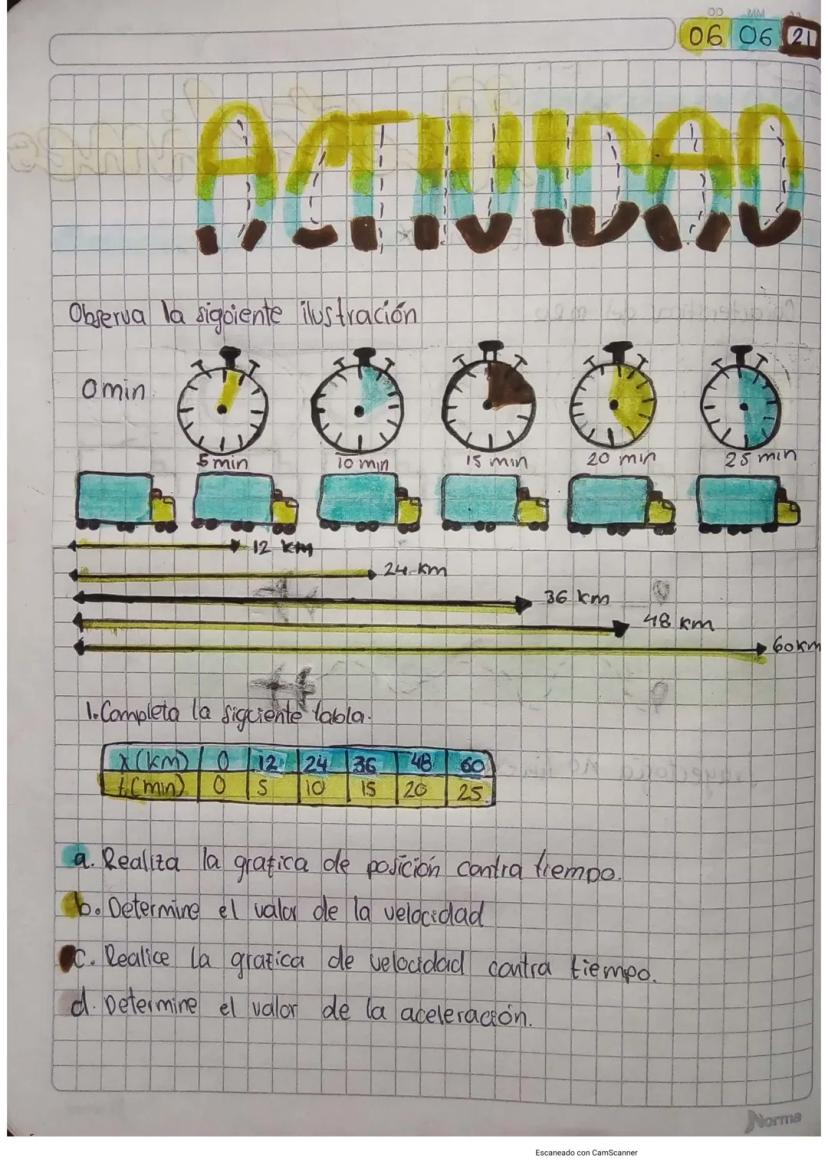 DD MM AA
06 06 21
ACTIVIDAD
Observa la siguiente ilustración
0 min
5 min 10 min 15 min 20 min 25 min
12 km
24 km
36 km
48 km
60 km
1. Completa la siguiente tabla.
x (km) 0 12 24 36 48 60
t (min) 0 5 10 15 20 25
a. Realiza la grafica de posición contra tiempo.
b. Determine el valor de la velocidad
c. Realice la grafica de velocidad contra tiempo.
d. Determine el valor de la aceleración.
Norma
Escaneado con CamScanner